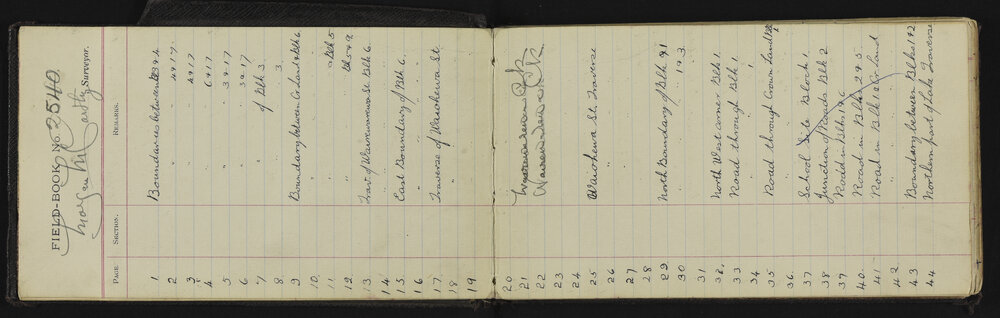 FIELD-BOOK No. 2540
Morgan McCarthy, Surveyor.
PAGE. SECTION. REMARKS.
1 Boundaries between Blks 9 & 4
2 " " 4 & 17
3 " " 4 & 17
4 " " 6 & 17
5 " " 3 & 17
6 " " 3 & 17
7 " of Blk 3
8 " " 3
9 Boundary between Cr Land & Blk 6
10 " "
11 " " & Blk 5
12 " " Blk 5 & 9
13 Part of St Blk 6
14 "
15 East Boundary of Blk 6
16 " "
17 Traverse of Waiohewa St.
18 "
19
20
21
22
23
24
25 Waiohewa St. Traverse
26 "
27
28
29 North Boundary of Blk 9
30 " " 1 & 3
31
32 North West corner Blk 1
33 Road through Blk 1
34 " "
35 Road through Crown Land
36
37 School Site Block 1
38 Junction of Roads Blk 2
39 Road in Blks
40 Road in Blks 2 & 3
41 Road in Blk 1 & Cr Land
42
43 Boundary between Blks 1 & 2
44 Northern part of Lake Traverse